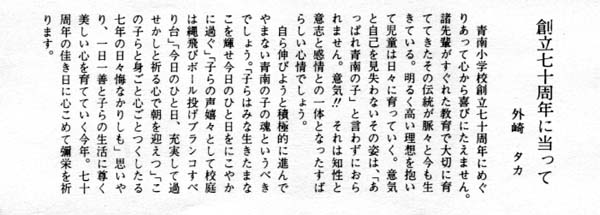 創立七十周年に当って
外崎 タカ
青南小学校創立七十周年にめぐ
りあって心から喜びにたえません。
諸先輩がすぐれた教育で大切に育
ててきたその伝統が脈々と今も生
きている。明るく高い理想を抱い
て児童は日々に育っていく。意気
と自己を見失わないその姿は、「あ
っぱれ青南の子」と言わずにおら
れません。意気!! それは知性と
意志と感情との一体となったすば
らしい心情でしょう。
自ら伸びようと積極的に進んで
やまない青南の子の魂というべき
でしょう。「子らはみな生きたまな
こを輝せ今日のひと日をにこやか
に過ぐ」「子らの声嬉々として校庭
は縄飛びボール投げブランコすべ
り台」「今日のひと日、充実して過
せかしと祈る心で朝を迎えつ」「こ
の子らと身ごと心ごとつくしたる
七年の日々悔なかりしも」思いや
り、一日一善と子らの生活に尊く
美しい心を育てていく今年。七十
周年の佳き日に心こめて彌栄を祈
ります。